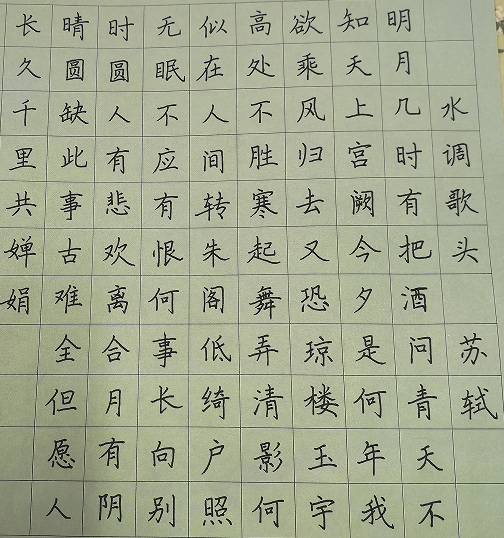 水调歌头 苏轼
明月几时有把酒问青天不
知天上宫阙今夕是何年我
欲乘风归去又恐琼楼玉宇
高处不胜寒起舞弄清影何
似在人间转朱阁低绮户照
无眠不应有恨何事长向别
时圆人有悲欢离合月有阴
晴圆缺此事古难全但愿人
长久千里共婵娟